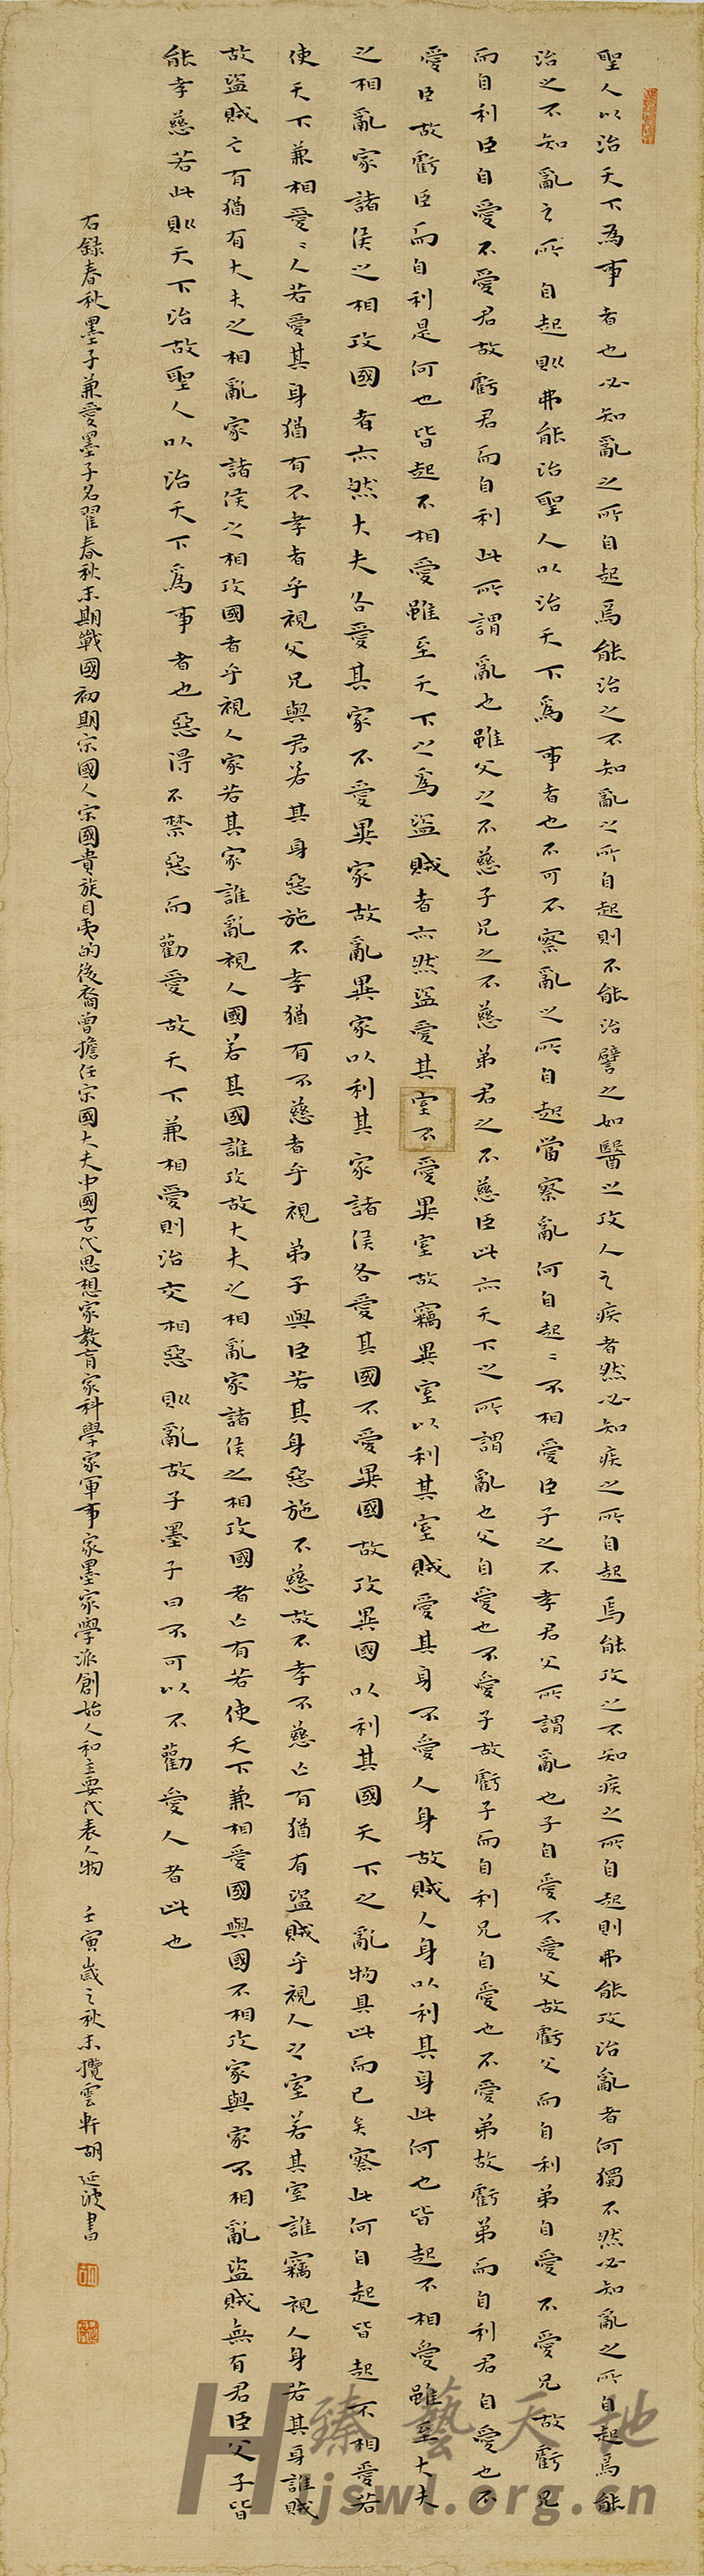 聖人以治天下為事者也必知亂之所自起焉能治之不知亂之所自起則不能治譬之如醫之攻人之疾者然必知疾之所自起焉能攻之不知疾之所自起則弗能攻治亂者何獨不然必知亂之所自起焉能
治之不知亂之所自起則弗能治聖人以治天下為事者也不可不察亂之所自起當察亂何自起〻不相愛臣子之不孝君父所謂亂也子自愛不愛父故虧父而自利弟自愛不愛兄故虧兄
而自利臣自愛不愛君故虧君而自利此所謂亂也雖父之不慈子兄之不慈弟君之不慈臣此亦天下之所謂亂也父自愛也不愛子故虧子而自利兄自愛也不愛弟故虧弟而自利君自愛也不
愛臣故虧臣而自利是何也皆起不相愛雖至天下之為盜賊者亦然盜愛其室不愛異室故竊異室以利其室賊愛其身不愛人身故賊人身以利其身此何也皆起不相愛雖至大夫
之相亂家諸侯之相攻國者亦然大夫各愛其家不愛異家故亂異家以利其家諸侯各愛其國不愛異國故攻異國以利其國天下之亂物具此而已矣察此何自起皆起不相愛若
使天下兼相愛〻人若愛其身猶有不孝者乎視父兄與君若其身惡施不孝猶有不慈者乎視弟子與臣若其身惡施不慈故不孝不慈亡有猶有盜賊乎視人之室若其室誰竊視人身若其身誰賊
故盜賊亡有猶有大夫之相亂家諸侯之相攻國者乎視人家若其家誰亂視人國若其國誰攻故大夫之相亂家諸侯之相攻國者亡有若使天下兼相愛國與國不相攻家與家不相亂盜賊無有君臣父子皆
能孝慈若此則天下治故聖人以治天下為事者也惡得不禁惡而勸愛故天下兼相愛則治交相惡則亂故子墨子曰不可以不勸愛人者此也
右錄春秋墨子兼愛墨子名翟春秋末期戰國初期宋國人宋國貴族目夷的後裔曾擔任宋國大夫中國古代思想家教育家科學家軍事家墨家學派創始人和主要代表人物 壬寅歲之秋末攬雲軒胡延波書
臻藝天地
Hljswl.org.cn